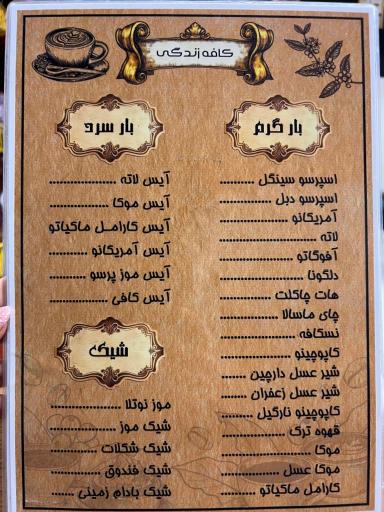 کافه زندگی
بار گرم
اسپرسو سینگل ..........
اسپرسو دبل ..............
آمریکانو ....................
لاته ..............................
آفوگاتو ......................
دلگونا ......................
هات چاکلت ...............
چای ماسالا ................
نسکافه .....................
کاپوچینو ....................
شیر عسل دارچین .......
شیر عسل زعفران .......
کاپوچینو نارگیل .........
قهوه ترک ...................
موکا ..........................
موکا عسل .................
کارامل ماکیاتو ...........
بار سرد
آیس لاته ....................
آیس موکا ..................
آیس کارامل ماکیاتو
آیس آمریکانو ...........
آیس موز پرسو ...........
آیس کافی .................
شیک
موز نوتلا .....................
شیک موز ...................
شیک شکلات ...............
شیک فندوق ...............
شیک بادام زمینی .......